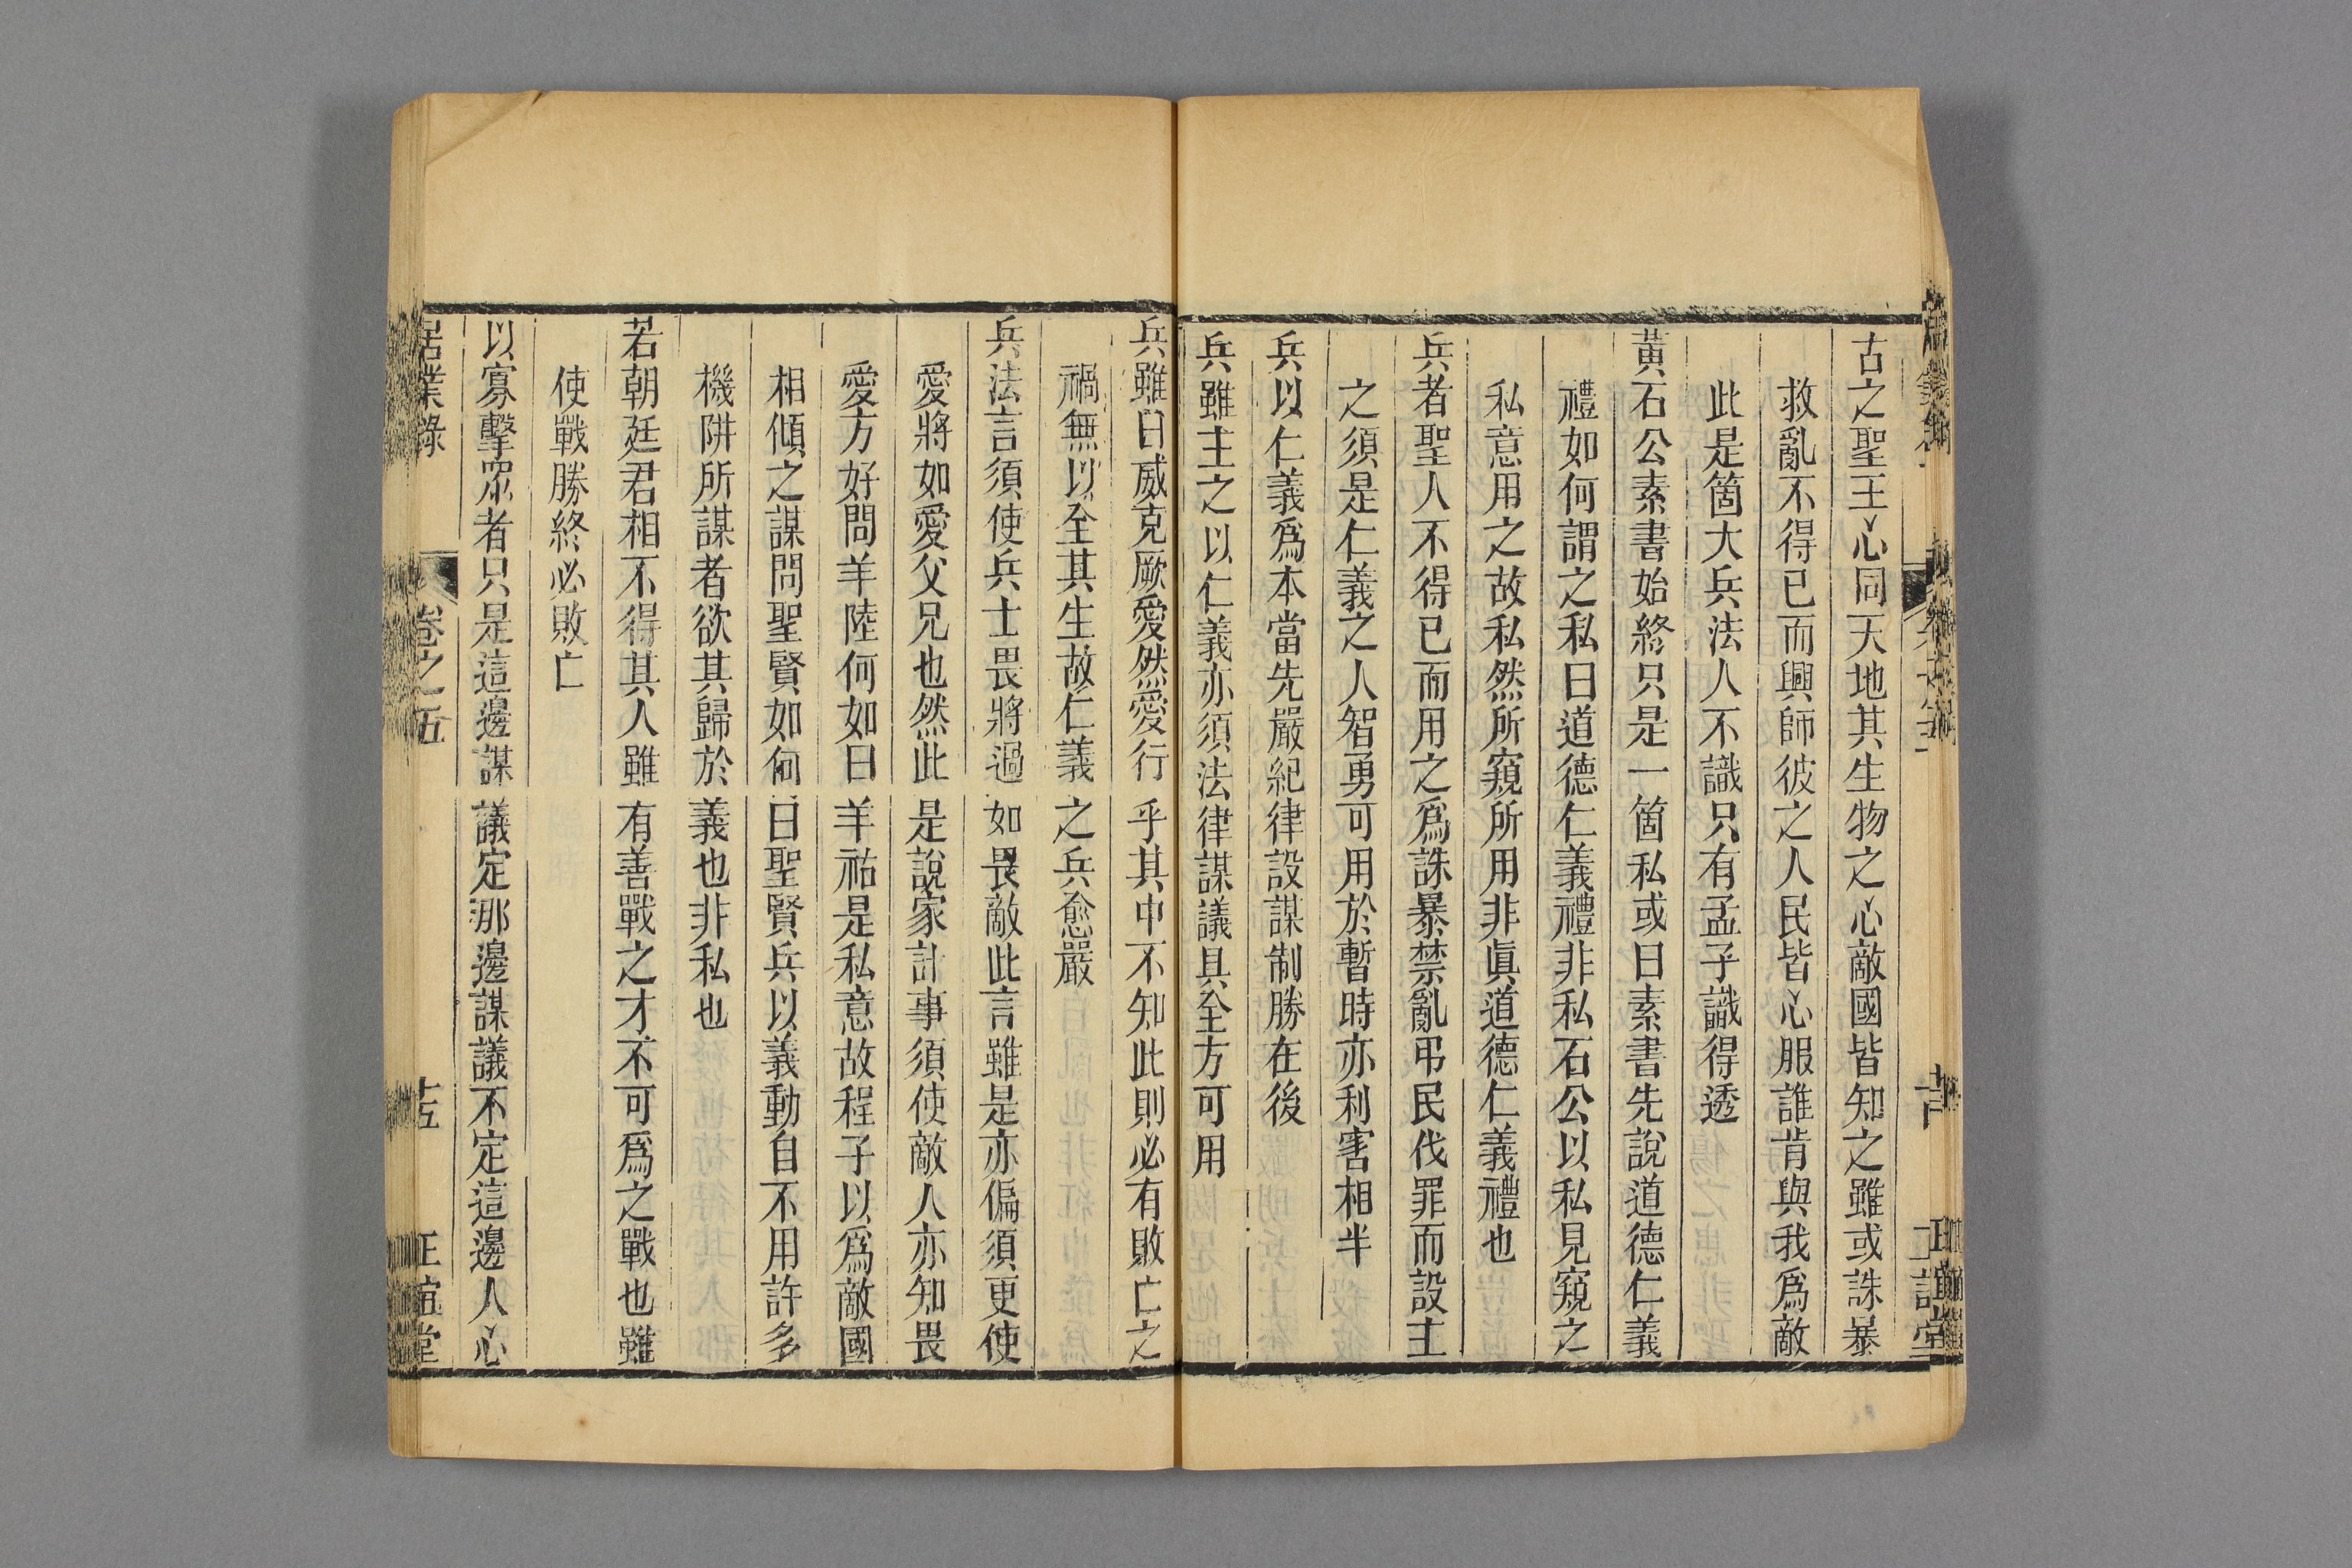 古之聖王心同天地其生物之心敵國皆知之雖或誅暴
救亂不得已而興師彼之人民皆心服誰肯與我爲敵
此是箇大兵法人不識只有孟子識得透
黃石公素書始終只是一箇私或曰素書先說道德仁義
禮如何謂之私曰道德仁義禮非私石公以私見窺之
私意用之故私然所窺所用非眞道德仁義禮也
兵者聖人不得已而用之爲誅暴禁亂弔民伐罪而設主
之須是仁義之人智勇可用於暫時亦利害相半
兵以仁義爲本當先嚴紀律設謀制勝在後
兵雖主之以仁義亦須法律謀議具至方可用
兵雖曰威克厥愛然愛行乎其中不知此則必有敗亡之
禍無以全其生故仁義之兵愈嚴
兵法言須使兵士畏將過如畏敵此言雖是亦偏須更使
愛將如愛父兄也然此是說家計事須使敵人亦知畏
愛方好問羊陸何如曰羊祜是私意故程子以爲敵國
相傾之謀問聖賢如何曰聖賢兵以義動自不用許多
機阱所謀者欲其歸於義也非私也
若朝廷君相不得其人雖有善戰之才不可爲之戰也雖
使戰勝終必敗亡
以寡擊眾者只是這邊謀議定那邊謀議不定這邊人心
居業錄 卷之五 十五 正誼堂